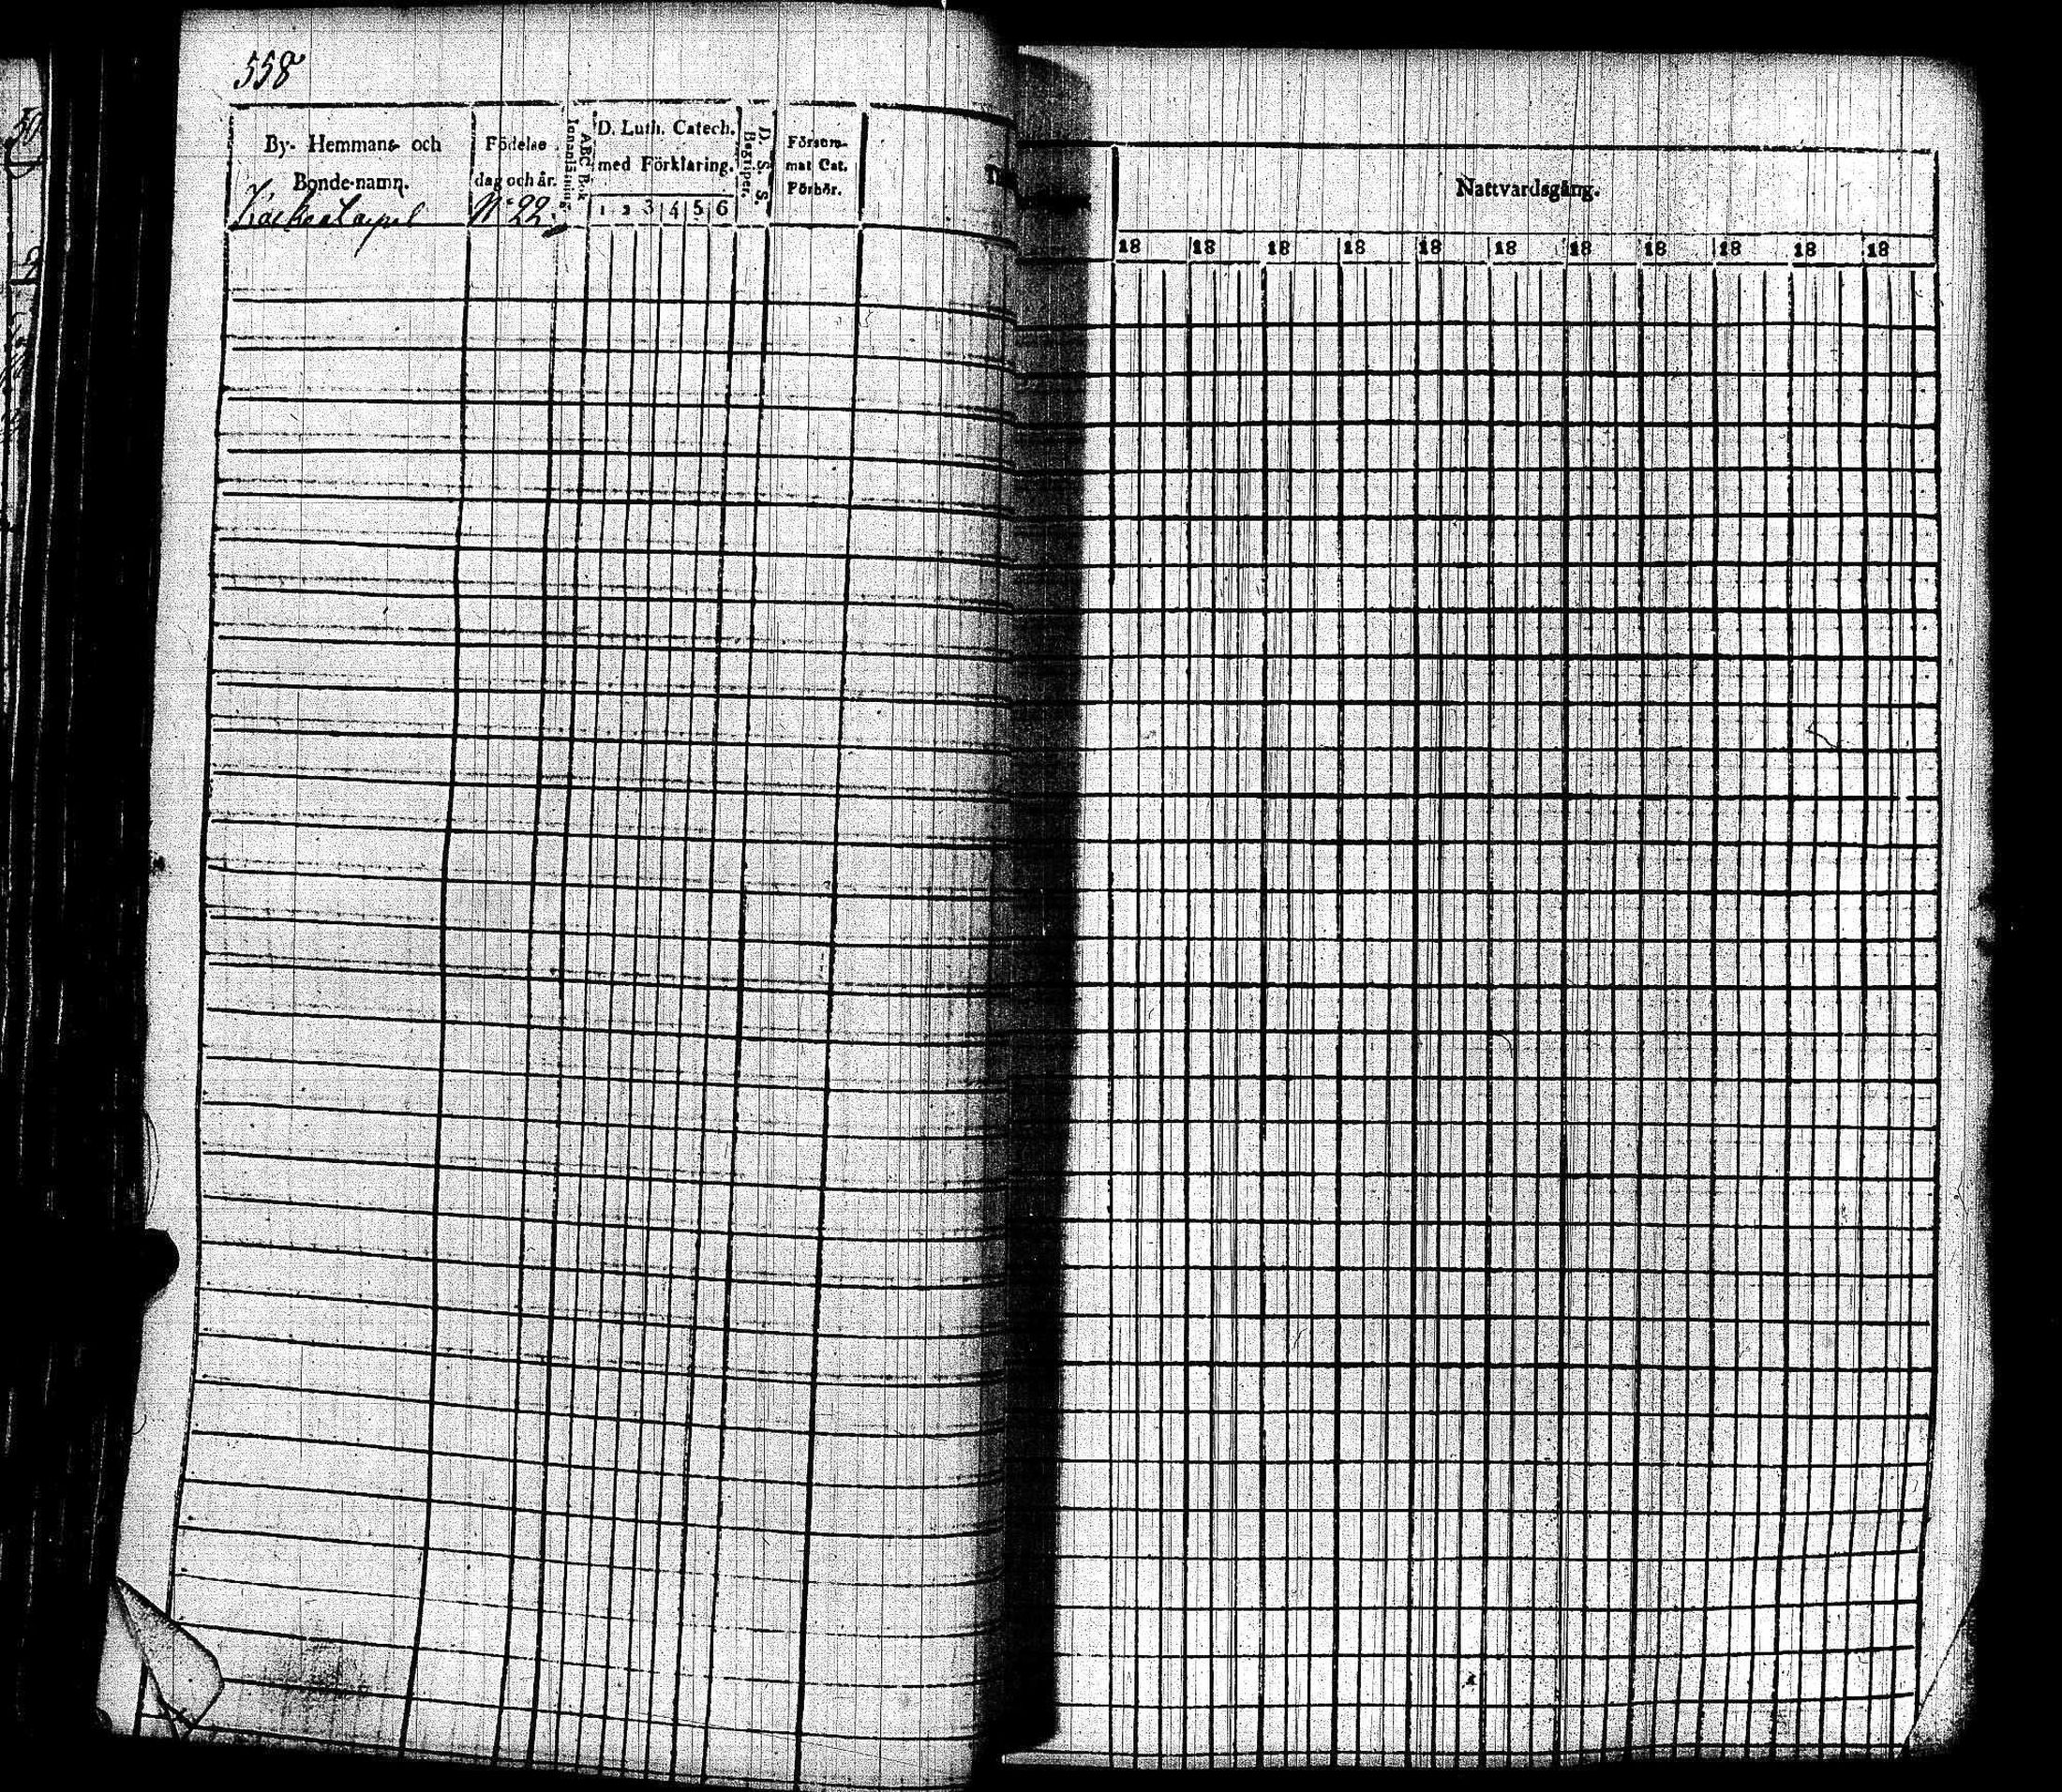 558
By- Hemmans- och
Bonde-namn.
Födelse
dag och år.
N:o 22.
Innanläsning
ABC Bok
D. Luth. Catech.
med Förklaring.
1 2 3 4 5 6
Begriper.
D. S. S.
Försum-
mat Cat.
Förhör.
Nattvardsgång.
18 18 18 18 18 18 18 18 18 18 18